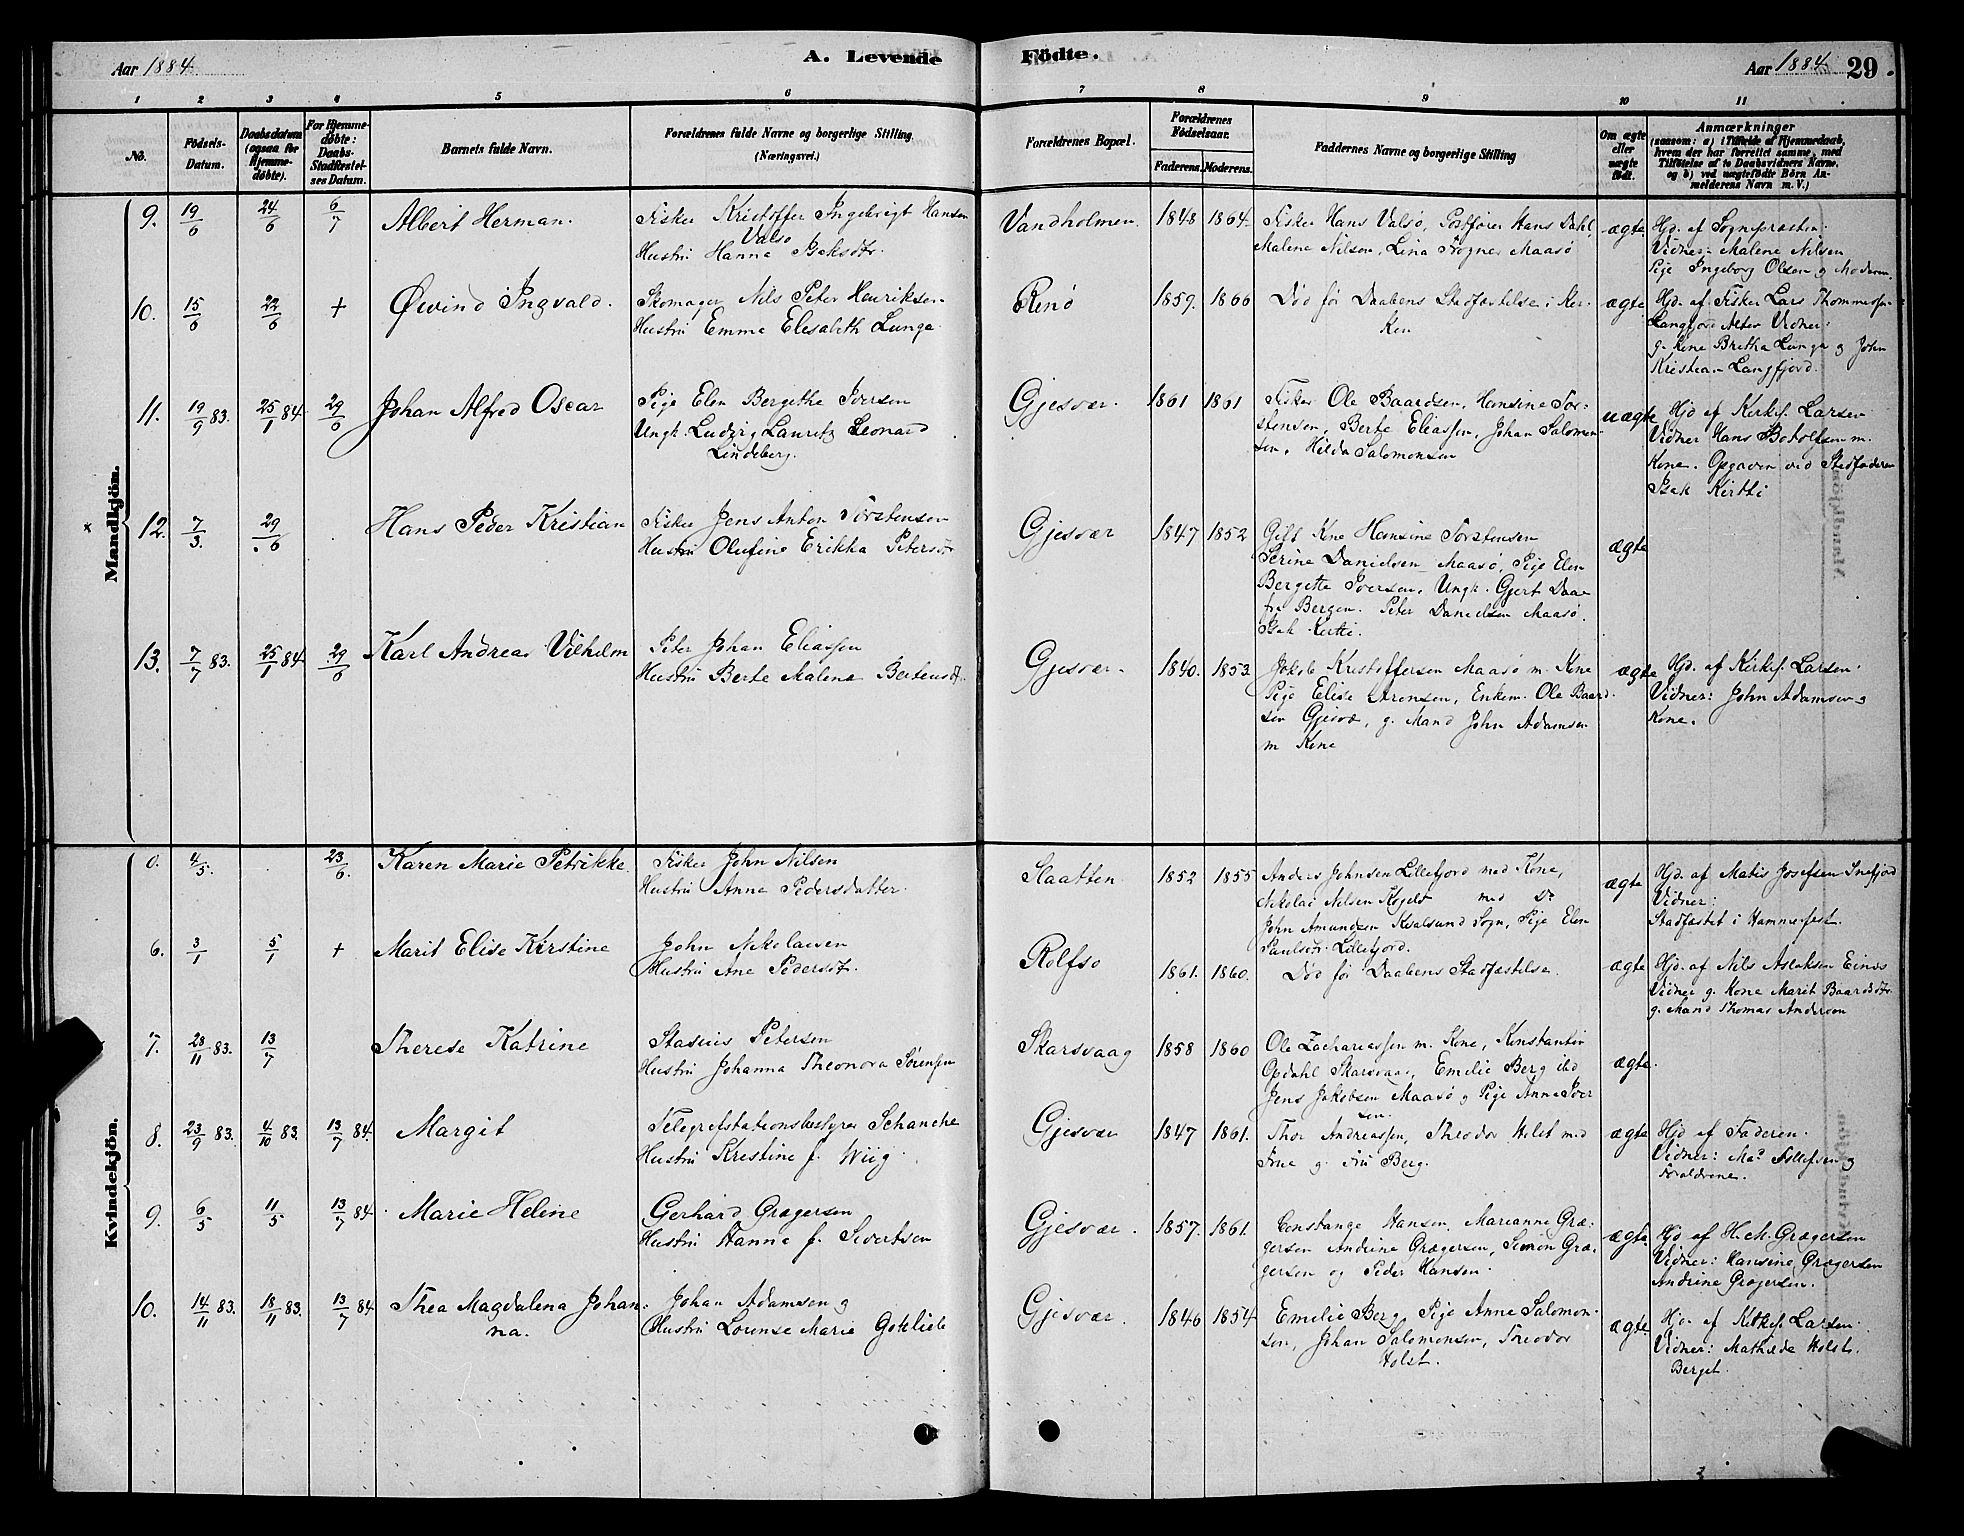 Aar 1884.
A. Levende
Födte.
Aar 1884
29.
1
2
3
4
5
6
7
8
9
10
11
No.
Födsels-
Datum.
Daabsdatum
(ogsaa for
Hjemme-
døbte).
For Hjemme-
døbte:
Daabs-
Stadfæstel-
ses Datum.
Barnets fulde Navn.
Forældrenes fulde Navne og borgerlige Stilling.
(Næringsvei.)
Forældrenes Bopæl.
Forældrenes
Födselsaar.
Faderens.
Moderens.
Faddernes Navne og borgerlige Stilling
Om ægte
eller
uægte
födt.
Anmærkninger
(saasom: a) i Tilfælde af Hjemmedaab,
hvem der har forrettet samme, med
Tilføielse af to Daabsvidners Navne,
og b) ved uægtefødte Börn An-
melderens Navn m. V.)
Mandkjön.
9.
19/6
24/6
6/7
Albert Herman.
Fisker Kristoffer Ingebrigt Hansen
Valsø
Hustru Hanna Isaksdtr.
Vandholmen.
1848
1864
Fisker Hans Valsø, Postfører Hans Dahl,
Malene Nilsen, Lina Fogner Maasø
ægte
Hjd. af Sognepræsten.
Vidner: Malene Nilsen
Pige Ingeborg Olsen og Moderen.
10.
15/6
22/6
+
Øivind Ingvald.
Skomager Nils Peter Henriksen
Hustru Emma Elisabeth Lunga
Renø
1859.
1866
Død før Daabens Stadfæstelse i Kir-
ken
ægte
Hjd. af Fisker Lars Thommesen
Langfjord Alten Vidner:
g. Kone Bretha Lunga og John
Kristian Langfjord.
11.
19/9 83.
25/1 84.
29/6
Johan Alfred Oscar
Pige Elen Bergithe Iversen
Ungk. Ludvig Lauritz Leonard
Lindeberg.
Gjesvær.
1861
1861
Fisker Ole Baardsen, Hansine Tor-
stensen, Berte Eliassen, Johan Salomon-
sen, Hilda Salomonsen
uægte
Hjd af Kirkes. Larsen
Vidner Hans Botolfsen m.
Kone. Opgaven ved Stedfaderen
Isak Kirtti
12.
7/3.
29/6
Hans Peder Kristian
Fisker Jens Anton Torstensen
Hustru Olufine Erikka Petersdtr
Gjesvær
1847
1852
Gift Kone Hansine Torstensen
Serine Danielsen Maasø, Pige Elen
Bergitte Iversen, Ungk. Gjert Daae
fra Bergen. Peter Danielsen Maasø.
Isak Kirtti.
ægte
13.
7/7 83.
25/1 84
29/6
Karl Andreas Vilhelm
Peter Johan Eliassen
Hustru Berte Malena Bertensdt.
Gjesvær.
1840.
1853
Jakob Kristoffersen Maasø m. Kone
Pige Elise Arensen, Enkem. Ole Baard-
sen Gjesvæ, g. Mand John Adamsen
m Kone
ægte
Hjd. af Kirkes. Larsen.
Vidner: John Adamsen og
Kone.
Kvindekjön.
0.
4/5.
23/6.
Karen Marie Petrikke
Fisker John Nilsen
Hustru Anne Pedersdatter.
Slaatten
1852
1855
Anders Johnsen Lillefjord med Kone,
Nikolai Nilsen med Do
John Amundsen Kvalsund Sogn, Pige Elen
Paulsdtr. Lillefjord.
ægte
Hjd. af Matis Josefsen Snefjord
Vidner:
Stadfæstet i Hammerfest.
6.
3/1
5/1
+
Marit Elise Kirstine
John Nikolaisen
Hustru Ane Pedersdt.
Rolfsø
1861.
1860.
Død før Daabens Stadfæstelse.
ægte
Hjd. af Nils Aslaksen
Vidner g. Kone Marit Baardsdtr.
g. Mand Thomas Andersen
7.
28/11 83.
13/7
Therese Katrine
Stasius Petersen
Hustru Johanna Theonora Sørensen
Skarsvaag
1858
1860
Ole Zachariassen m. Kone, Konstantin
Opdahl Skarsvaag, Emilie Berg ibd
Jens Jakobsen Maasø og Pige Anne Iver
sen.
ægte.
8.
23/9 83.
4/10 83.
13/7 84.
Margit
Telegrafstationsbestyrer Schanche
Hustru Kristine f. Wiig.
Gjesvær
1847
1861.
Thor Andreassen, Theodor Holst med
Frue g. Fru Berg.
ægte
Hjd af Faderen.
Vidner: Mad. Tollefsen og
Forældrene.
9.
6/5
11/5
13/7 84.
Marie Heline
Gerhard Grægersen
Hustru Hanna f. Sivertsen
Gjesvær.
1857.
1861.
Constanse Hansen, Marianne Græ-
gersen Andrine Grægersen, Simon Græ-
gersen og Peder Hansen.
ægte.
Hjd af H. M. Grægersen
Vidner: Hansine Grægersen
Andrine Grægersen.
10.
14/11 83.
18/11 83.
13/7 84
Thea Magdalena Johan-
na.
Johan Adamsen og
Hustru Lorense Marie Gotlieb
Gjesvær.
1846
1854
Emilie Berg, Pige Anne Salomon-
sen, Johan Salomonsen, Theodor
Holst.
ægte
Hjd. af Kirkes. Larsen.
Vidner: Mathilde Holst.
Berget.